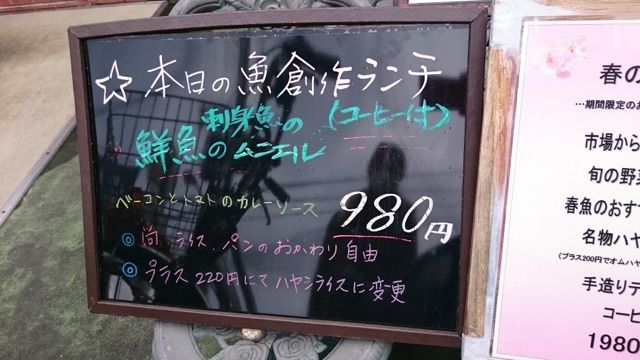 ☆本日の魚創作ランチ
刺身魚の(コーヒー付)
鮮魚のムニエル
ベーコンとトマトのカレーソース
980円
◎尚、ライス、パンのおかわり自由
◎プラス220円にてハヤシライスに変更
春の
…期間限定のお
市場から
旬の野菜
春魚のおす
名物ハヤ
(プラス200円でオムハヤ
手造りデ
コーヒ
1980